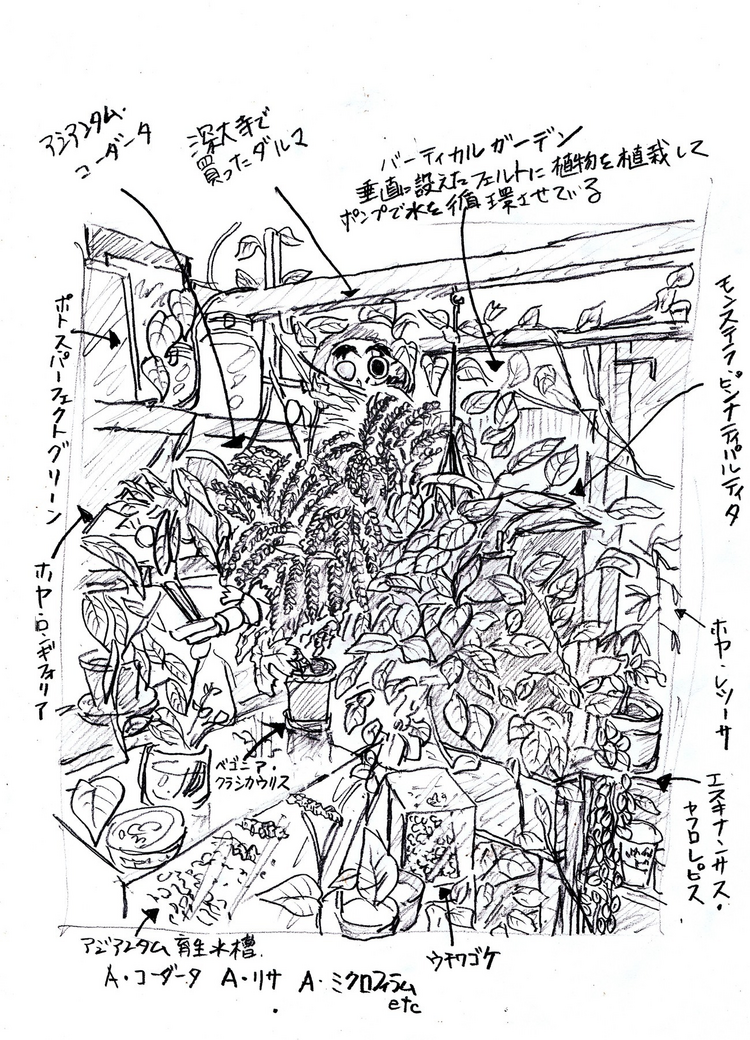 アジアンタム・
コーダータ
深大寺で
買ったダルマ
バーティカルガーデン
垂直に設えたフェルトに植物を植栽して
ポンプで水を循環させている
ポトスパーフェクトグリーン
モンステラ・ピンナティパルティタ
ホヤ・ロンギフォリア
ホヤ・レツーサ
ベゴニア・
クラシカウリス
エスキナンサス・
ヤフロレピス
アジアンタム育生水槽
A・コーダータ A・リサ A・ミクロフィラム
etc
ウチワゴケ